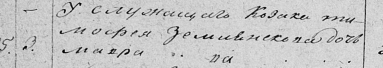 — У служащаго Козака Ти-
мофея Землянскова дочь
5. 3. Мавра